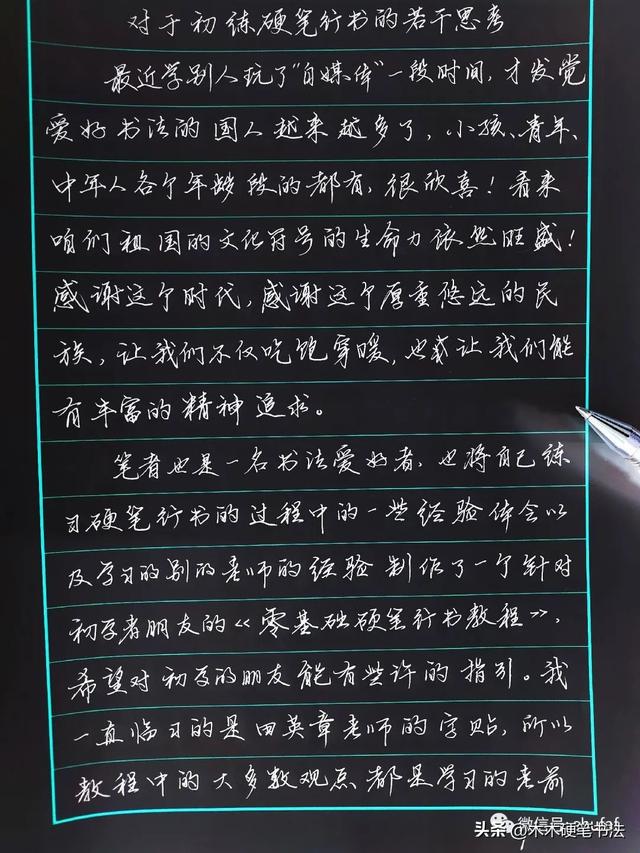 对于初练硬笔行书的若干思考
最近学别人玩了“自媒体”一段时间，才发觉
爱好书法的国人越来越多了，小孩、青年、
中年人各个年龄段的都有，很欣喜！看来
咱们祖国的文化符号的生命力依然旺盛！
感谢这个时代，感谢这个厚重悠远的民
族，让我们不仅吃饱穿暖，也或让我们能
有丰富的精神追求。
笔者也是一名书法爱好者，也将自己练
习硬笔行书的过程中的一些经验体会以
及学习的别的老师的经验制作了一个针对
初学者朋友的《零基础硬笔行书教程》，
希望对初学的朋友能有些许的指引。我
一直临习的是田英章老师的字贴，所以
教程中的大多数观点都是学习的老前
微信号: shufaf
头条@木木硬笔书法